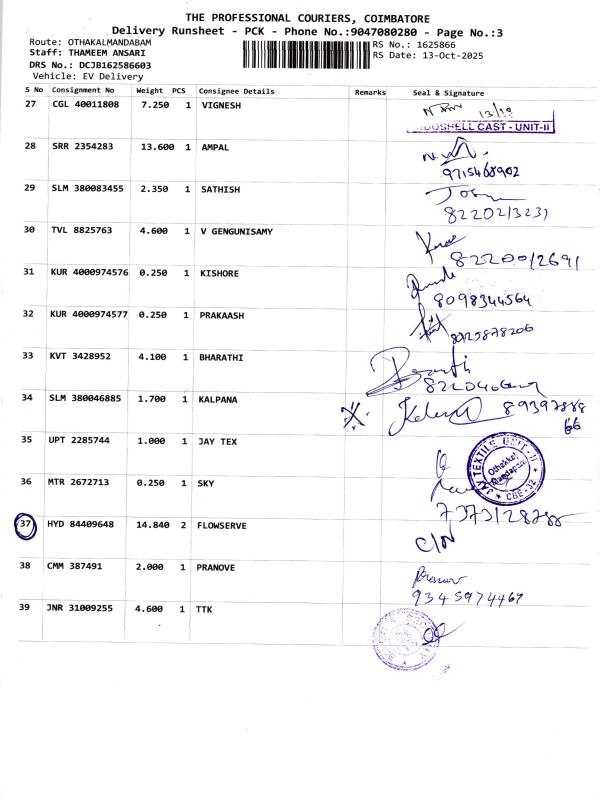 THE PROFESSIONAL COURIERS, COIMBATORE
Delivery Runsheet - PCK - Phone No.:9047080280 - Page No.:3
Route: OTHAKALMANDABAM
Staff: THAMEEM ANSARI
DRS No.: DCJB162586603
Vehicle: EV Delivery
RS No.: 1625866
RS Date: 13-Oct-2025
S No Consignment No Weight PCS Consignee Details Remarks Seal & Signature
27 CGL 40011808 7.250 1 VIGNESH
SHELL CAST - UNIT-II
28 SRR 2354283 13.600 1 AMPAL
9715468902
29 SLM 380083455 2.350 1 SATHISH
8220213231
30 TVL 8825763 4.600 1 V GENGUNISAMY
8220012691
31 KUR 4000974576 0.250 1 KISHORE
8098344564
32 KUR 4000974577 0.250 1 PRAKAASH
33 KVT 3428952 4.100 1 BHARATHI
34 SLM 380046885 1.700 1 KALPANA
8939788866
35 UPT 2285744 1.000 1 JAY TEX
JAY TEXTILE UNIT - II
Othakkal
Mandapam
CBE-32
36 MTR 2672713 0.250 1 SKY
7373128788
37 HYD 84409648 14.840 2 FLOWSERVE
C/N
38 CMM 387491 2.000 1 PRANOVE
9345974467
39 JNR 31009255 4.600 1 TTK